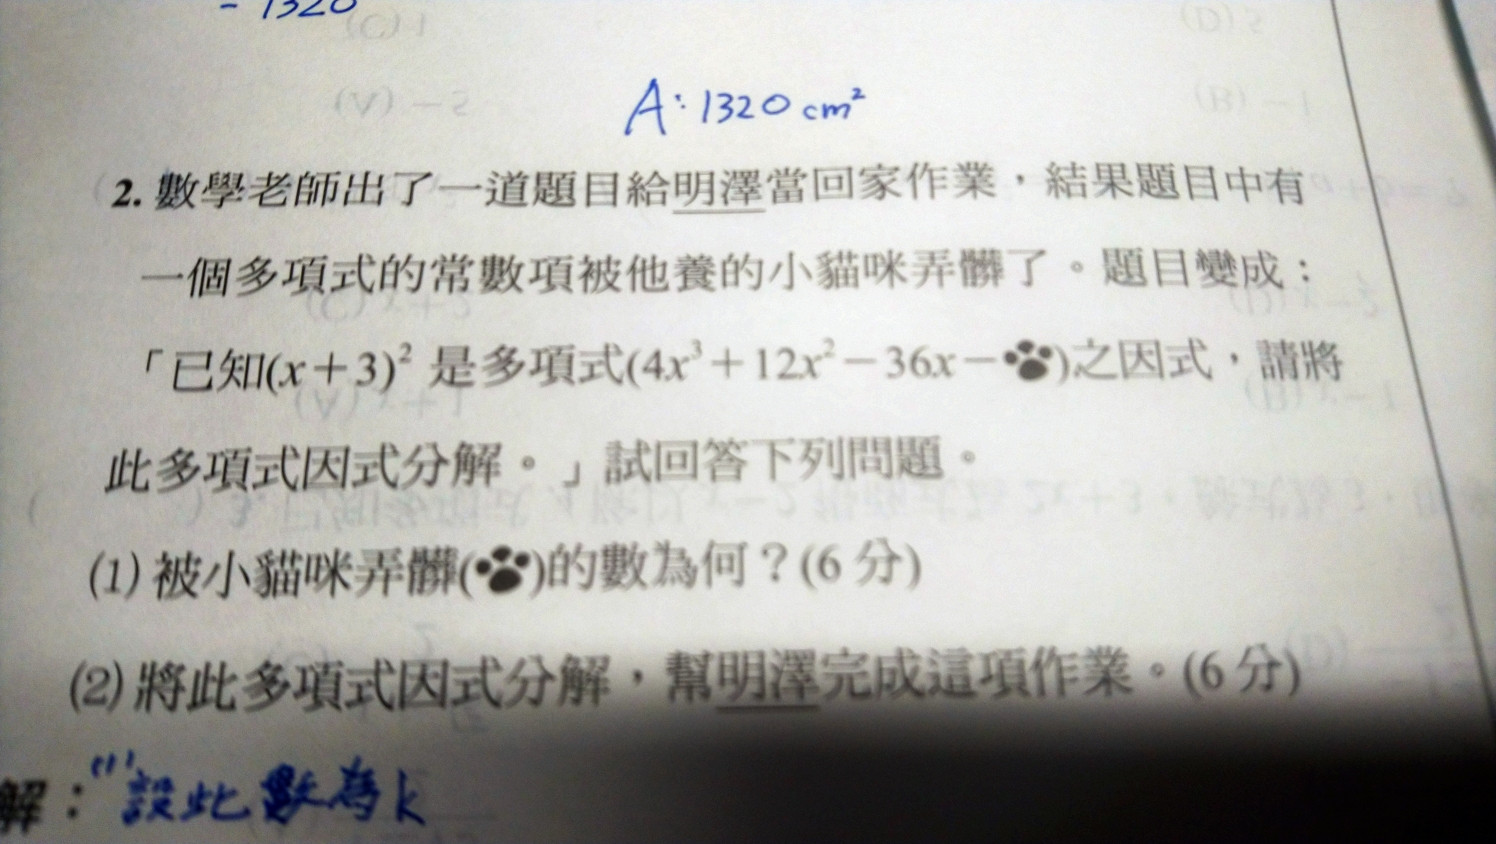 = 1320
A: 1320 cm²
2. 數學老師出了一道題目給明澤當回家作業，結果題目中有
一個多項式的常數項被他養的小貓咪弄髒了。題目變成：
「已知(x+3)² 是多項式(4x³+12x²-36x-)之因式，請將
此多項式因式分解。」試回答下列問題。
(1) 被小貓咪弄髒()的數為何？(6 分)
(2) 將此多項式因式分解，幫明澤完成這項作業。(6 分)
解：(1) 設此數為k